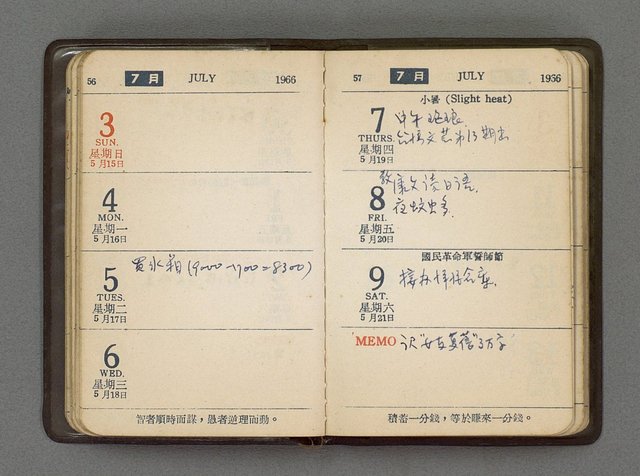 56 7月 JULY 1966
3
SUN.
星期日
5月15日
4
MON.
星期一
5月16日
5
TUES.
星期二
5月17日
買冰箱(9000-1700=8300)
6
WED.
星期三
5月18日
智者順時而謀,愚者逆理而動。
57 7月 JULY 1966
小暑 (Slight heat)
7
THURS.
星期四
5月19日
中午
台湾文芸第13期出
8
FRI.
星期五
5月20日
教廉文读日语.
夜蚊虫多.
國民革命軍誓師節
9
SAT.
星期六
5月21日
MEMO
積蓄一分錢,等於賺來一分錢。